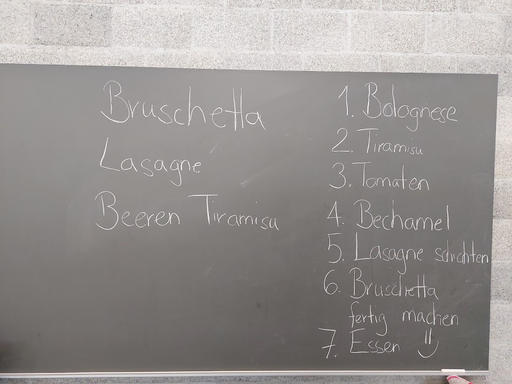 Bruschetta
Lasagne
Beeren Tiramisu
1. Bolognese
2. Tiramisu
3. Tomaten
4. Bechamel
5. Lasagne schichten
6. Bruschetta
fertig machen
7. Essen